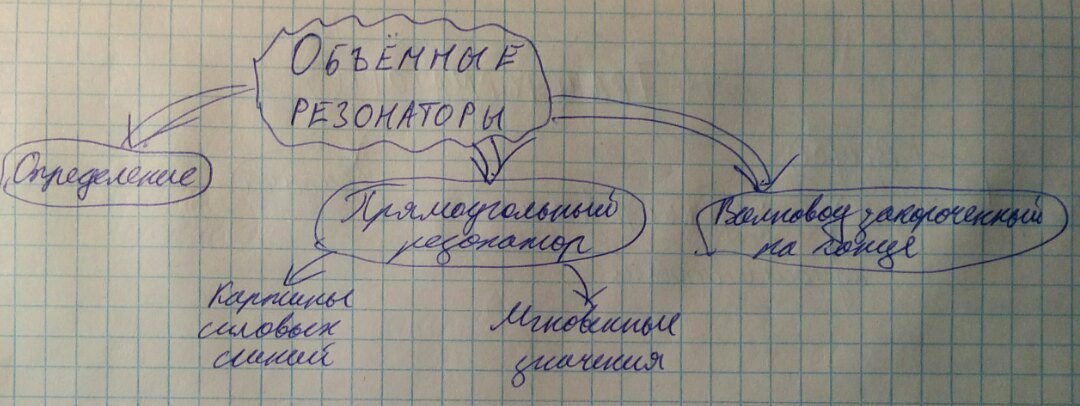 ОБЪЁМНЫЕ
РЕЗОНАТОРЫ
Определение
Прямоугольный
резонатор
Волновод закороченный
на конце
Картины
силовых
линий
Мгновенные
значения